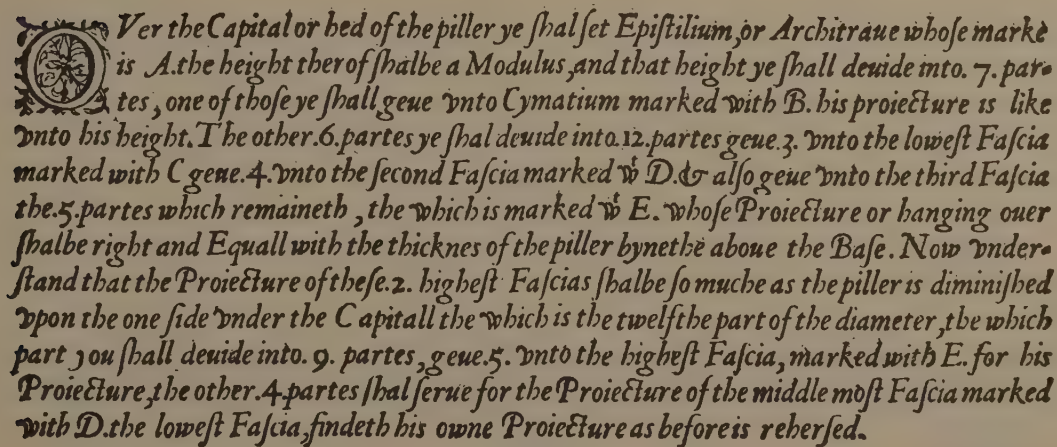 OVer the Capital or hed of the piller ye ſhal ſet Epiſtilium, or Architraue whoſe marke
is A. the height ther of ſhalbe a Modulus, and that height ye ſhall deuide into. 7. par-
tes, one of thoſe ye ſhall geue vnto Cymatium marked with B. his proiecture is like
vnto his height. The other. 6. partes ye ſhal deuide into. 12. partes geue. 3. vnto the loweſt Faſcia
marked with C geue. 4. vnto the ſecond Faſcia marked wͭ D. & alſo geue vnto the third Faſcia
the. 5. partes which remaineth, the which is marked wͭ E. whoſe Proiecture or hanging ouer
ſhalbe right and Equall with the thicknes of the piller bynethe aboue the Baſe. Now vnder-
ſtand that the Proiecture of theſe. 2. higheſt Faſcias ſhalbe ſo muche as the piller is diminiſhed
vpon the one ſide vnder the Capitall the which is the twelfthe part of the diameter, the which
part you ſhall deuide into. 9. partes, geue. 5. vnto the higheſt Faſcia, marked with E. for his
Proiecture, the other. 4. partes ſhal ſerue for the Proiecture of the middle moſt Faſcia marked
with D. the loweſt Faſcia, findeth his owne Proiecture as before is reherſed.